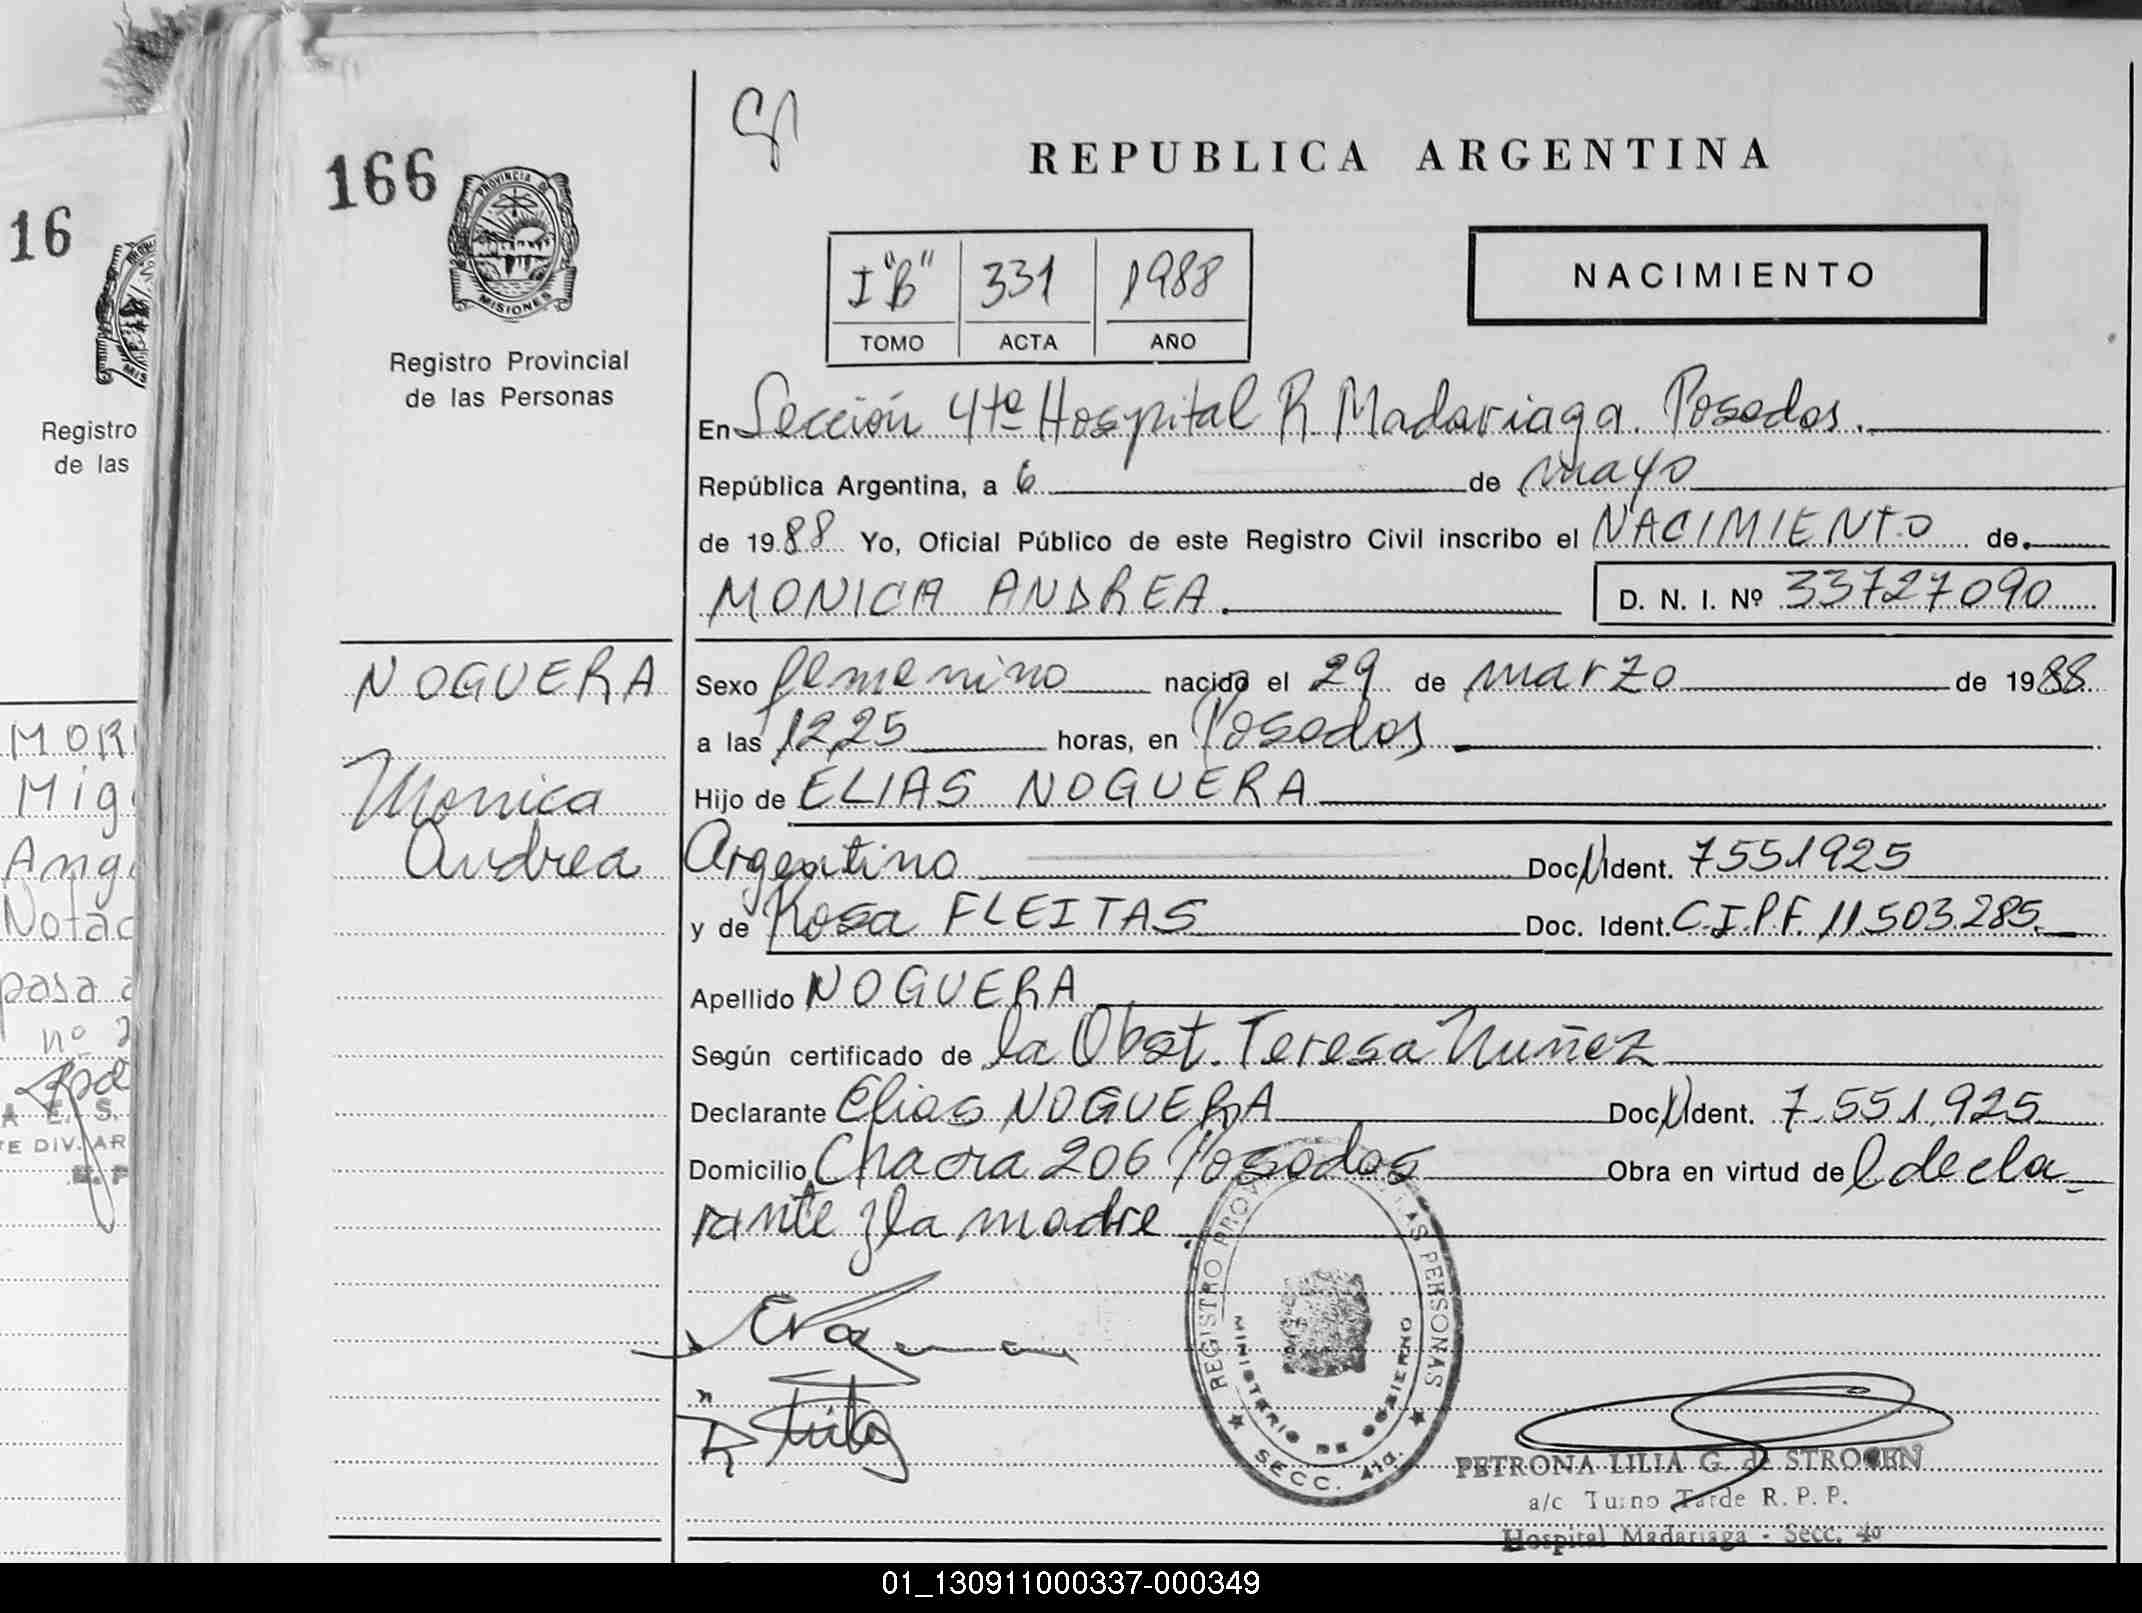 166
PROVINCIA DE
MISIONES
Registro Provincial
de las Personas
NOGUERA
Monica
Andrea
REPUBLICA ARGENTINA
I "B" 331 1988
TOMO ACTA AÑO
NACIMIENTO
En Sección 4ta Hospital R Madariaga. Posadas.
República Argentina, a 6 de mayo
de 1988 Yo, Oficial Público de este Registro Civil inscribo el NACIMIENTO de
MONICA ANDREA. D. N. I. Nº 33727090
Sexo femenino nacido el 29 de marzo de 1988
a las 12,25 horas, en Posadas
Hijo de ELIAS NOGUERA
Argentino Doc. N Ident. 7551925
y de Rosa FLEITAS Doc. Ident. C.I.P.F. 11.503.285
Apellido NOGUERA
Según certificado de la Obst. Teresa Nuñez
Declarante Elias NOGUERA Doc. N Ident. 7.551.925
Domicilio Chacra 206 Posadas Obra en virtud de l decla
rante y la madre.
REGISTRO PROV LAS PERSONAS
MINISTERIO DE GOBIERNO
SECC. 4ta.
PETRONA LILIA G. de STROEEN
a/c Turno Tarde R. P. P.
Hospital Madariaga - Secc. 4º
16
MIS
Registro
de las
MOR
Mig
Ang
Notac
pasa a
nº 2
A E. S.
TE DIV. AR
01_130911000337-000349